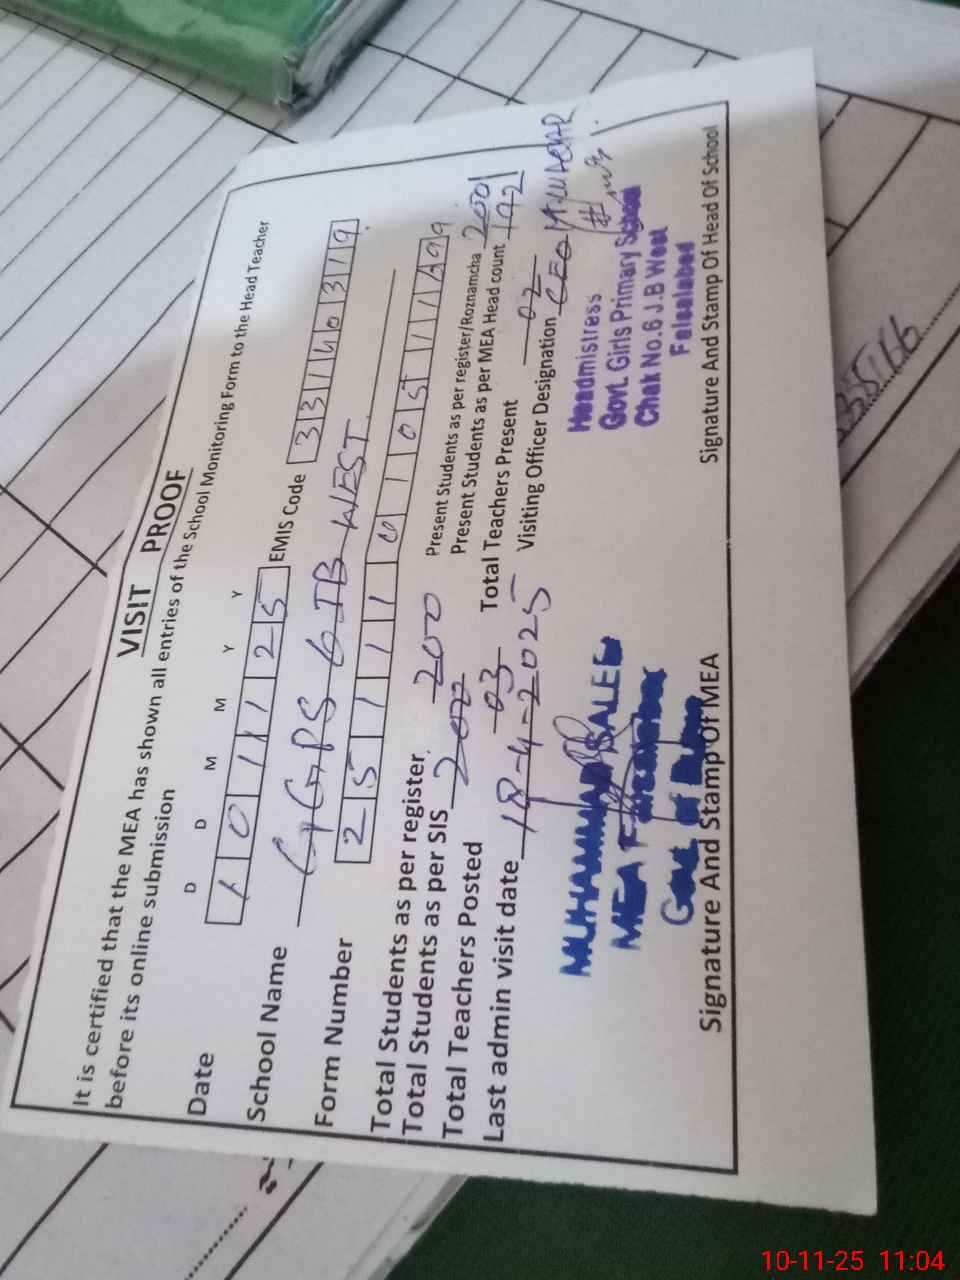 VISIT PROOF
It is certified that the MEA has shown all entries of the School Monitoring Form to the Head Teacher
before its online submission
D D M M Y Y
Date 101125 EMIS Code 33140319
School Name GGPS 6 JB WEST
Form Number 25111010511199
Total Students as per register 200 Present Students as per register/Roznamcha 200
Total Students as per SIS 200 Present Students as per MEA Head count 192
Total Teachers Posted 03 Total Teachers Present 02
Last admin visit date 18-4-2025 Visiting Officer Designation CEO
MUHAMMAD SALEEM
MEA
Headmistress
Govt. Girls Primary School
Chak No.6 J.B West
Faisalabad
Signature And Stamp Of MEA Signature And Stamp Of Head Of School
10-11-25 11:04